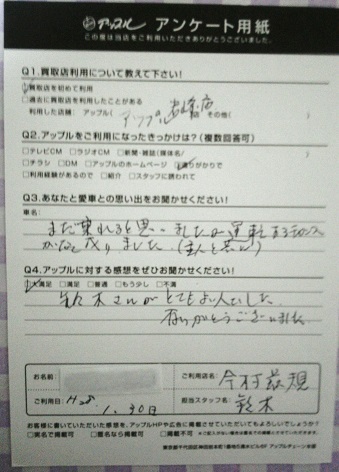 アップル アンケート用紙
この度は当店をご利用いただきありがとうございました。
Q1.買取店利用について教えて下さい!
買取店を初めて利用
□過去に買取店を利用したことがある
利用した店舗: アップル( 店 その他( )
Q2.アップルをご利用になったきっかけは?(複数回答可)
□テレビCM □ラジオCM □新聞・雑誌(媒体名/ )
□チラシ □DM □アップルのホームページ 通りがかりで
□利用経験があるので □紹介 □スタッフに誘われて
Q3.あなたと愛車との思い出をお聞かせください!
車名:
まだ乗れると思いましたが運転する
なりました。
Q4.アップルに対する感想をぜひお聞かせください!
大満足 □満足 □普通 □もう少し □不満
鈴木さんがとてもよい人でした。
ありがとうございました
お名前
ご利用店名:
ご利用日: H28. 1. 30日
担当スタッフ名: 鈴木
お客様に書いていただいた感想を、アップルHPや広告に掲載させていただいてもよろしいでしょうか?
□実名で掲載可 □匿名なら掲載可 □掲載不可